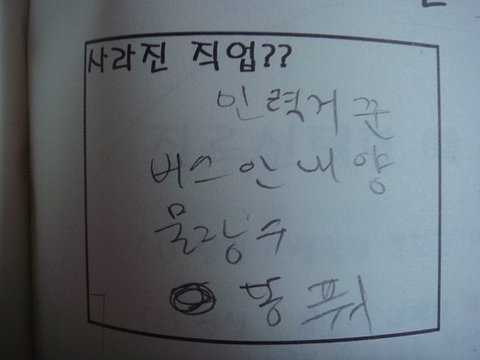 사라진 직업??
인력거꾼
버스안내양
물장수